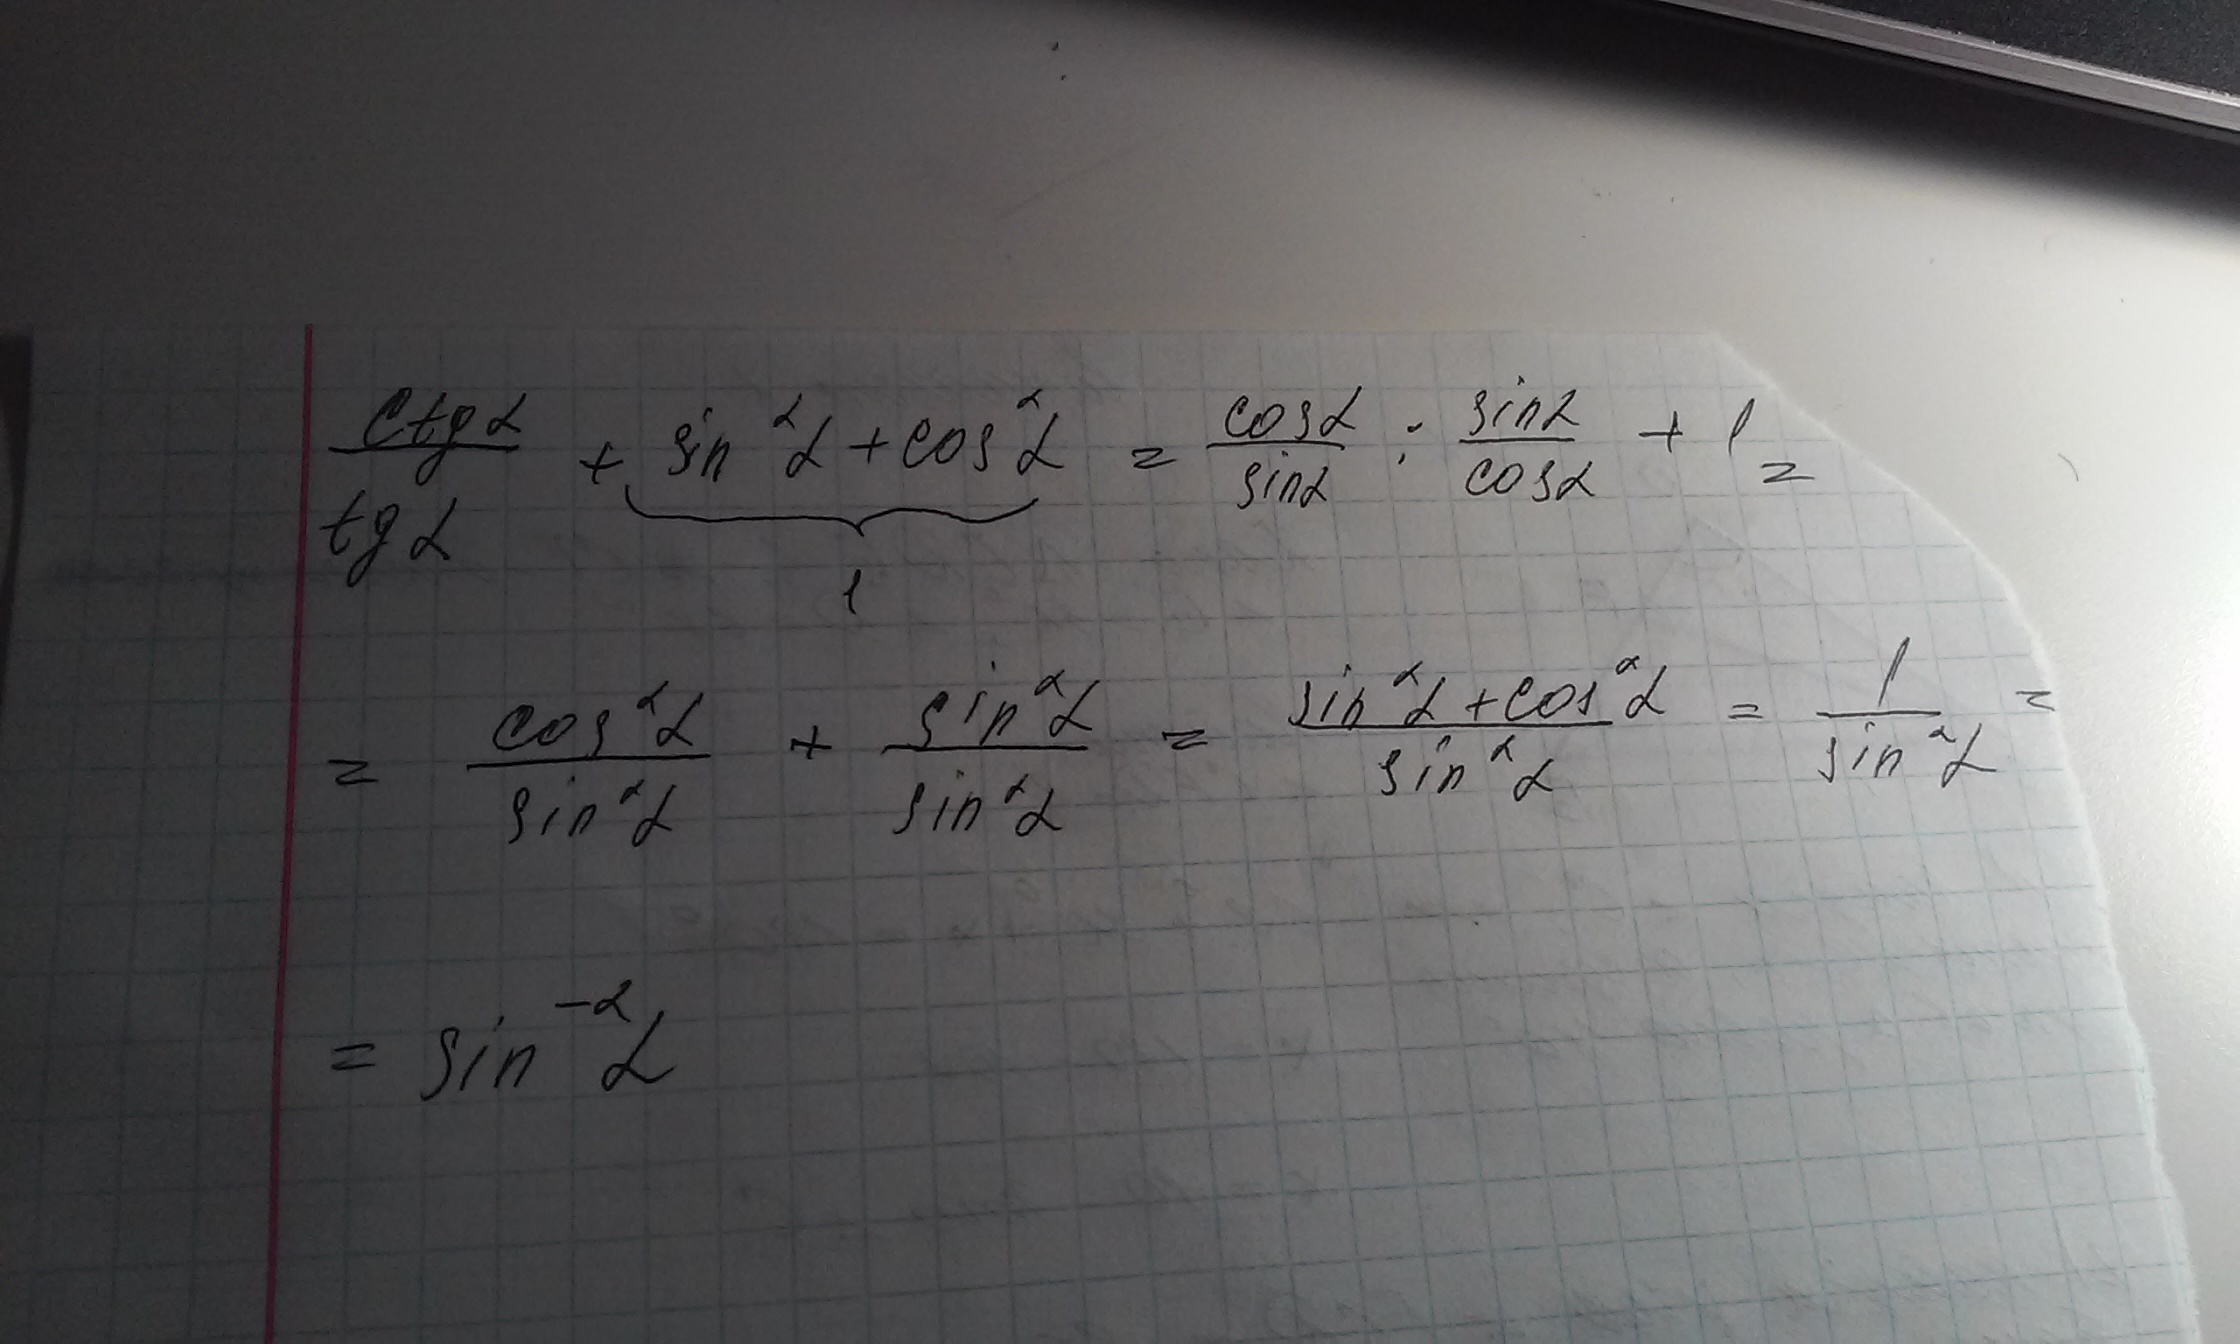 ctgα/tgα + sin²α + cos²α = cosα/sinα : sinα/cosα + 1 =
1
= cos²α/sin²α + sin²α/sin²α = (sin²α + cos²α)/sin²α = 1/sin²α =
= sin⁻²α